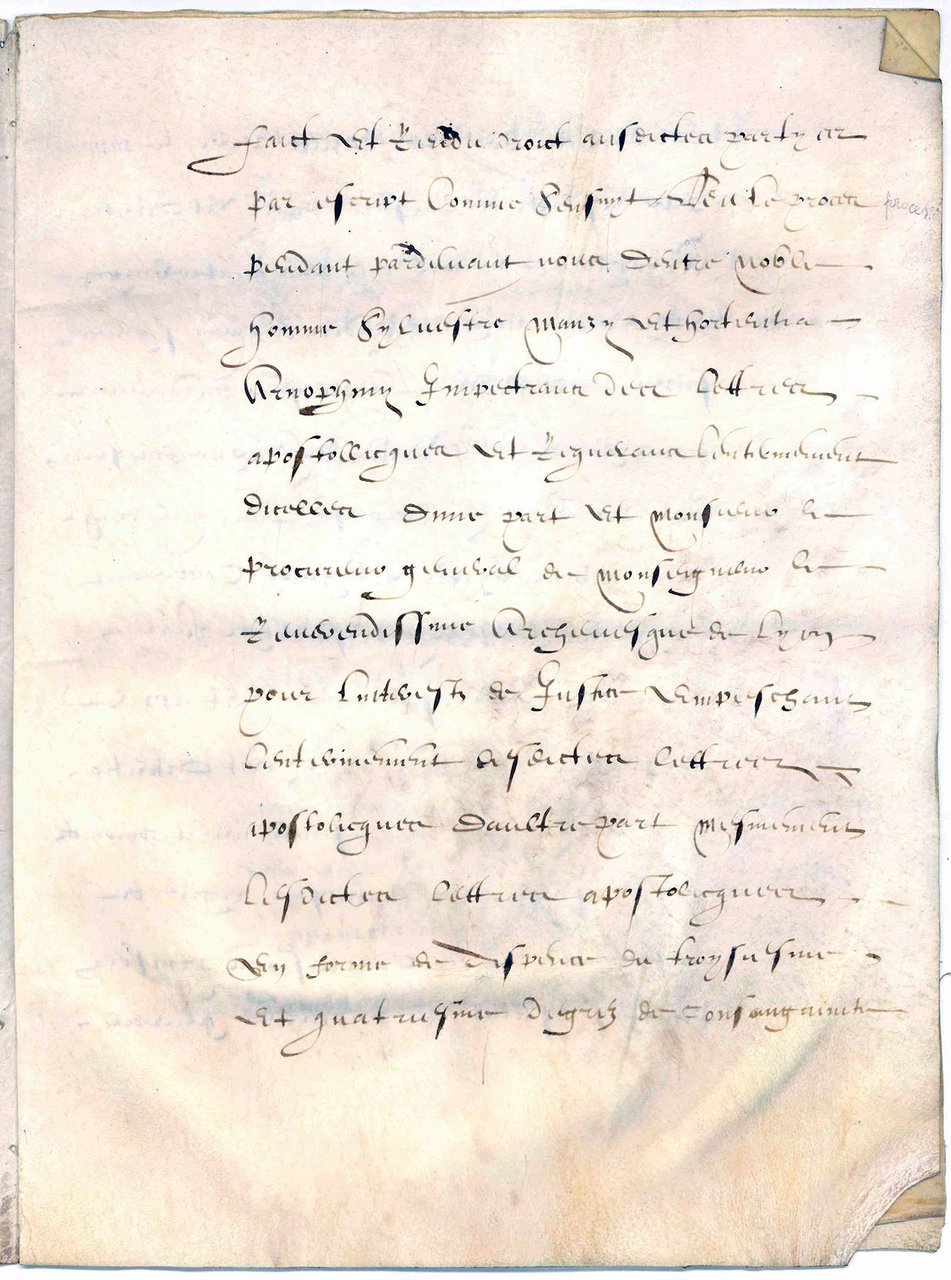 faict et Rendu droict ausdictes partyes
par escript Comme Sensuyt Veu le proces proces
pendant pardeuant nous Dentre noble
homme Syluestre Manzy et hortentia
Arnophiny Impectrans des lettres
apostollicques et Requerans lentherinement
dicelles dune part et monsieur le
procureur general de monseigneur le
Reuerendissime Archeuesque de Lyon
pour linterestz de Justice empeschant
lenterinement desdictes lettres
apostolicques daultre part mesmement
lesdictes lettres apostolicques
en forme de dispence du troysiesme
et quatriesme degrez de consanguinite